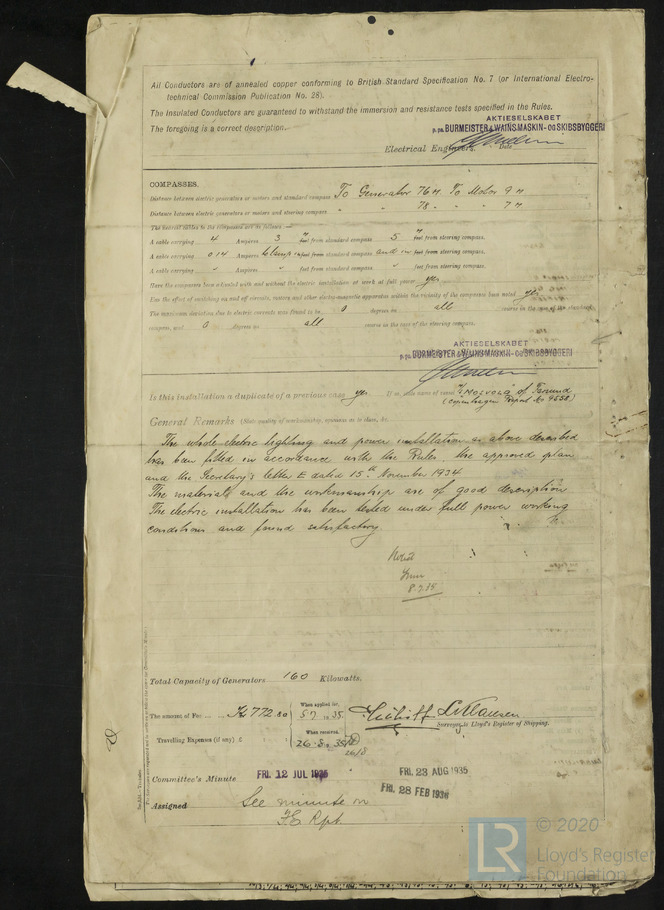 All Conductors are of annealed copper conforming to British Standard Specification No. 7 (or International Electro-
technical Commission Publication No. 28).
The Insulated Conductors are guaranteed to withstand the immersion and resistance tests specified in the Rules.
The foregoing is a correct description.
AKTIESELSKABET
p.pa. BURMEISTER & WAIN'S MASKIN- OG SKIBSBYGGERI
Electrical Engineers. Date
COMPASSES.
Distance between electric generators or motors and standard compass To Generator 76 To Motor 9
Distance between electric generators or motors and steering compass " " 78 " " 7
The nearest cables to the compasses are as follows:—
A cable carrying 4 Amperes 3 feet from standard compass 5 feet from steering compass.
A cable carrying 0.14 Amperes feet from standard compass and in feet from steering compass.
A cable carrying " Amperes " feet from standard compass " feet from steering compass.
Have the compasses been adjusted with and without the electric installation at work at full power yes
Has the effect of switching on and off circuits, motors and other electro-magnetic apparatus within the vicinity of the compasses been noted yes
The maximum deviation due to electric currents was found to be 0 degrees on all course in the case of the standard
compass, and 0 degrees on all course in the case of the steering compass.
AKTIESELSKABET
p.pa. BURMEISTER & WAIN'S MASKIN- OG SKIBSBYGGERI
Is this installation a duplicate of a previous case yes If so, state name of vessel of
(Copenhagen Report No 9558)
General Remarks (State quality of workmanship, opinions as to class, &c.
The whole electric lighting and power installation as above described
has been fitted in accordance with the Rules. the approved plan
and the Secretary's letter E dated 15th November 1934
The materials and the workmanship are of good description
The electric installation has been tested under full power working
conditions and found satisfactory
Noted
8.7.35
Total Capacity of Generators 160 Kilowatts.
The amount of Fee ... Kr 772.80
When applied for,
5.7.1935
When received,
26.8.1935
26/8
Travelling Expenses (if any) £
Surveyor to Lloyd's Register of Shipping.
Committee's Minute FRI. 12 JUL 1935 FRI. 23 AUG 1935
FRI. 28 FEB 1936
Assigned See minute on
F.E. Rpt.
LR © 2020
Lloyd's Register
Foundation